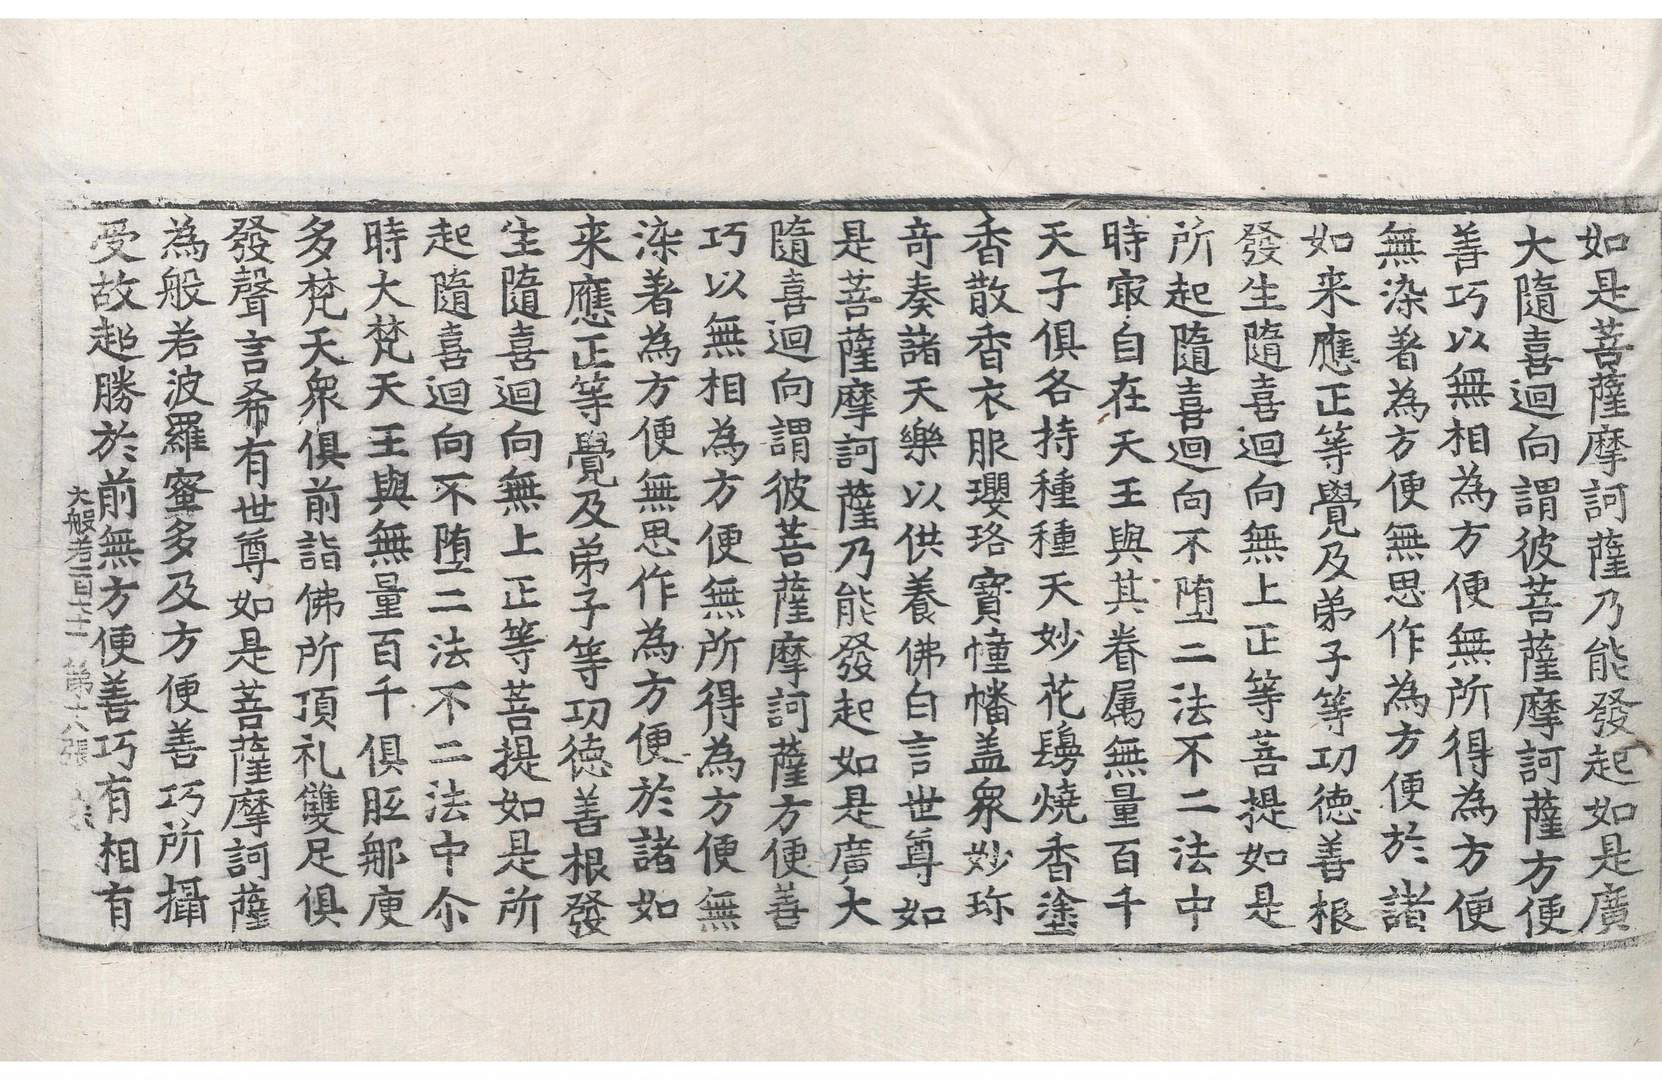 如是菩薩摩訶薩乃能發起如是廣
大隨喜迴向謂彼菩薩摩訶薩方便
善巧以無相為方便無所得為方便
無染著為方便無思作為方便於諸
如来應正等覺及弟子等功德善根
發生隨喜迴向無上正等菩提如是
所起隨喜迴向不堕二法不二法中
時冣自在天王與其眷属無量百千
天子俱各持種種天妙花鬘燒香塗
香散香衣服瓔珞寶幢幡盖衆妙珎
竒奏諸天樂以供養佛白言世尊如
是菩薩摩訶薩乃能發起如是廣大
隨喜迴向謂彼菩薩摩訶薩方便善
巧以無相為方便無所得為方便無
染著為方便無思作為方便於諸如
来應正等覺及弟子等功德善根發
生隨喜迴向無上正等菩提如是所
起隨喜迴向不堕二法不二法中尒
時大梵天王與無量百千俱胝那庾
多梵天衆俱前詣佛所頂礼雙足俱
發聲言希有世尊如是菩薩摩訶薩
為般若波羅蜜多及方便善巧所攝
受故超勝於前無方便善巧有相有
大般若一百七十二 第十八張